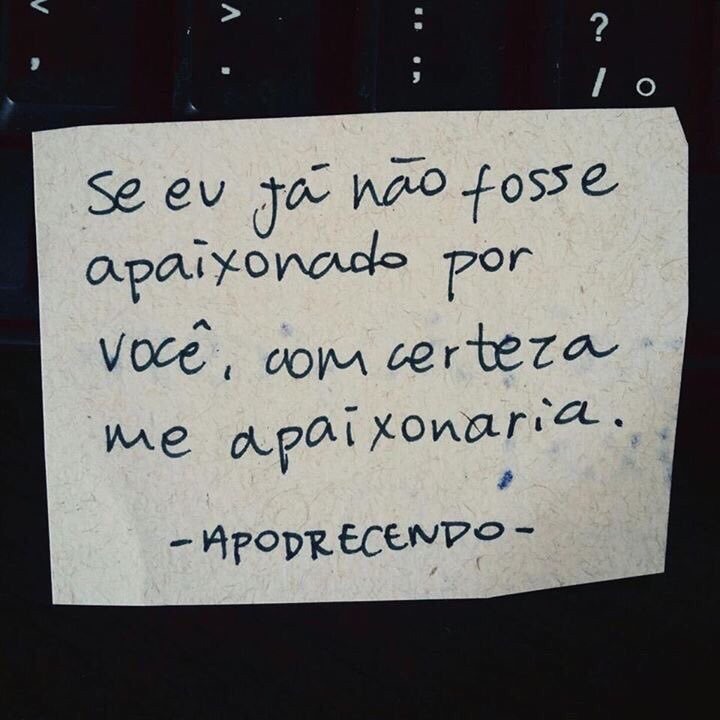 < > : ?
, . ; / °
Se eu já não fosse
apaixonado por
você, com certeza
me apaixonaria.
-APODRECENDO-